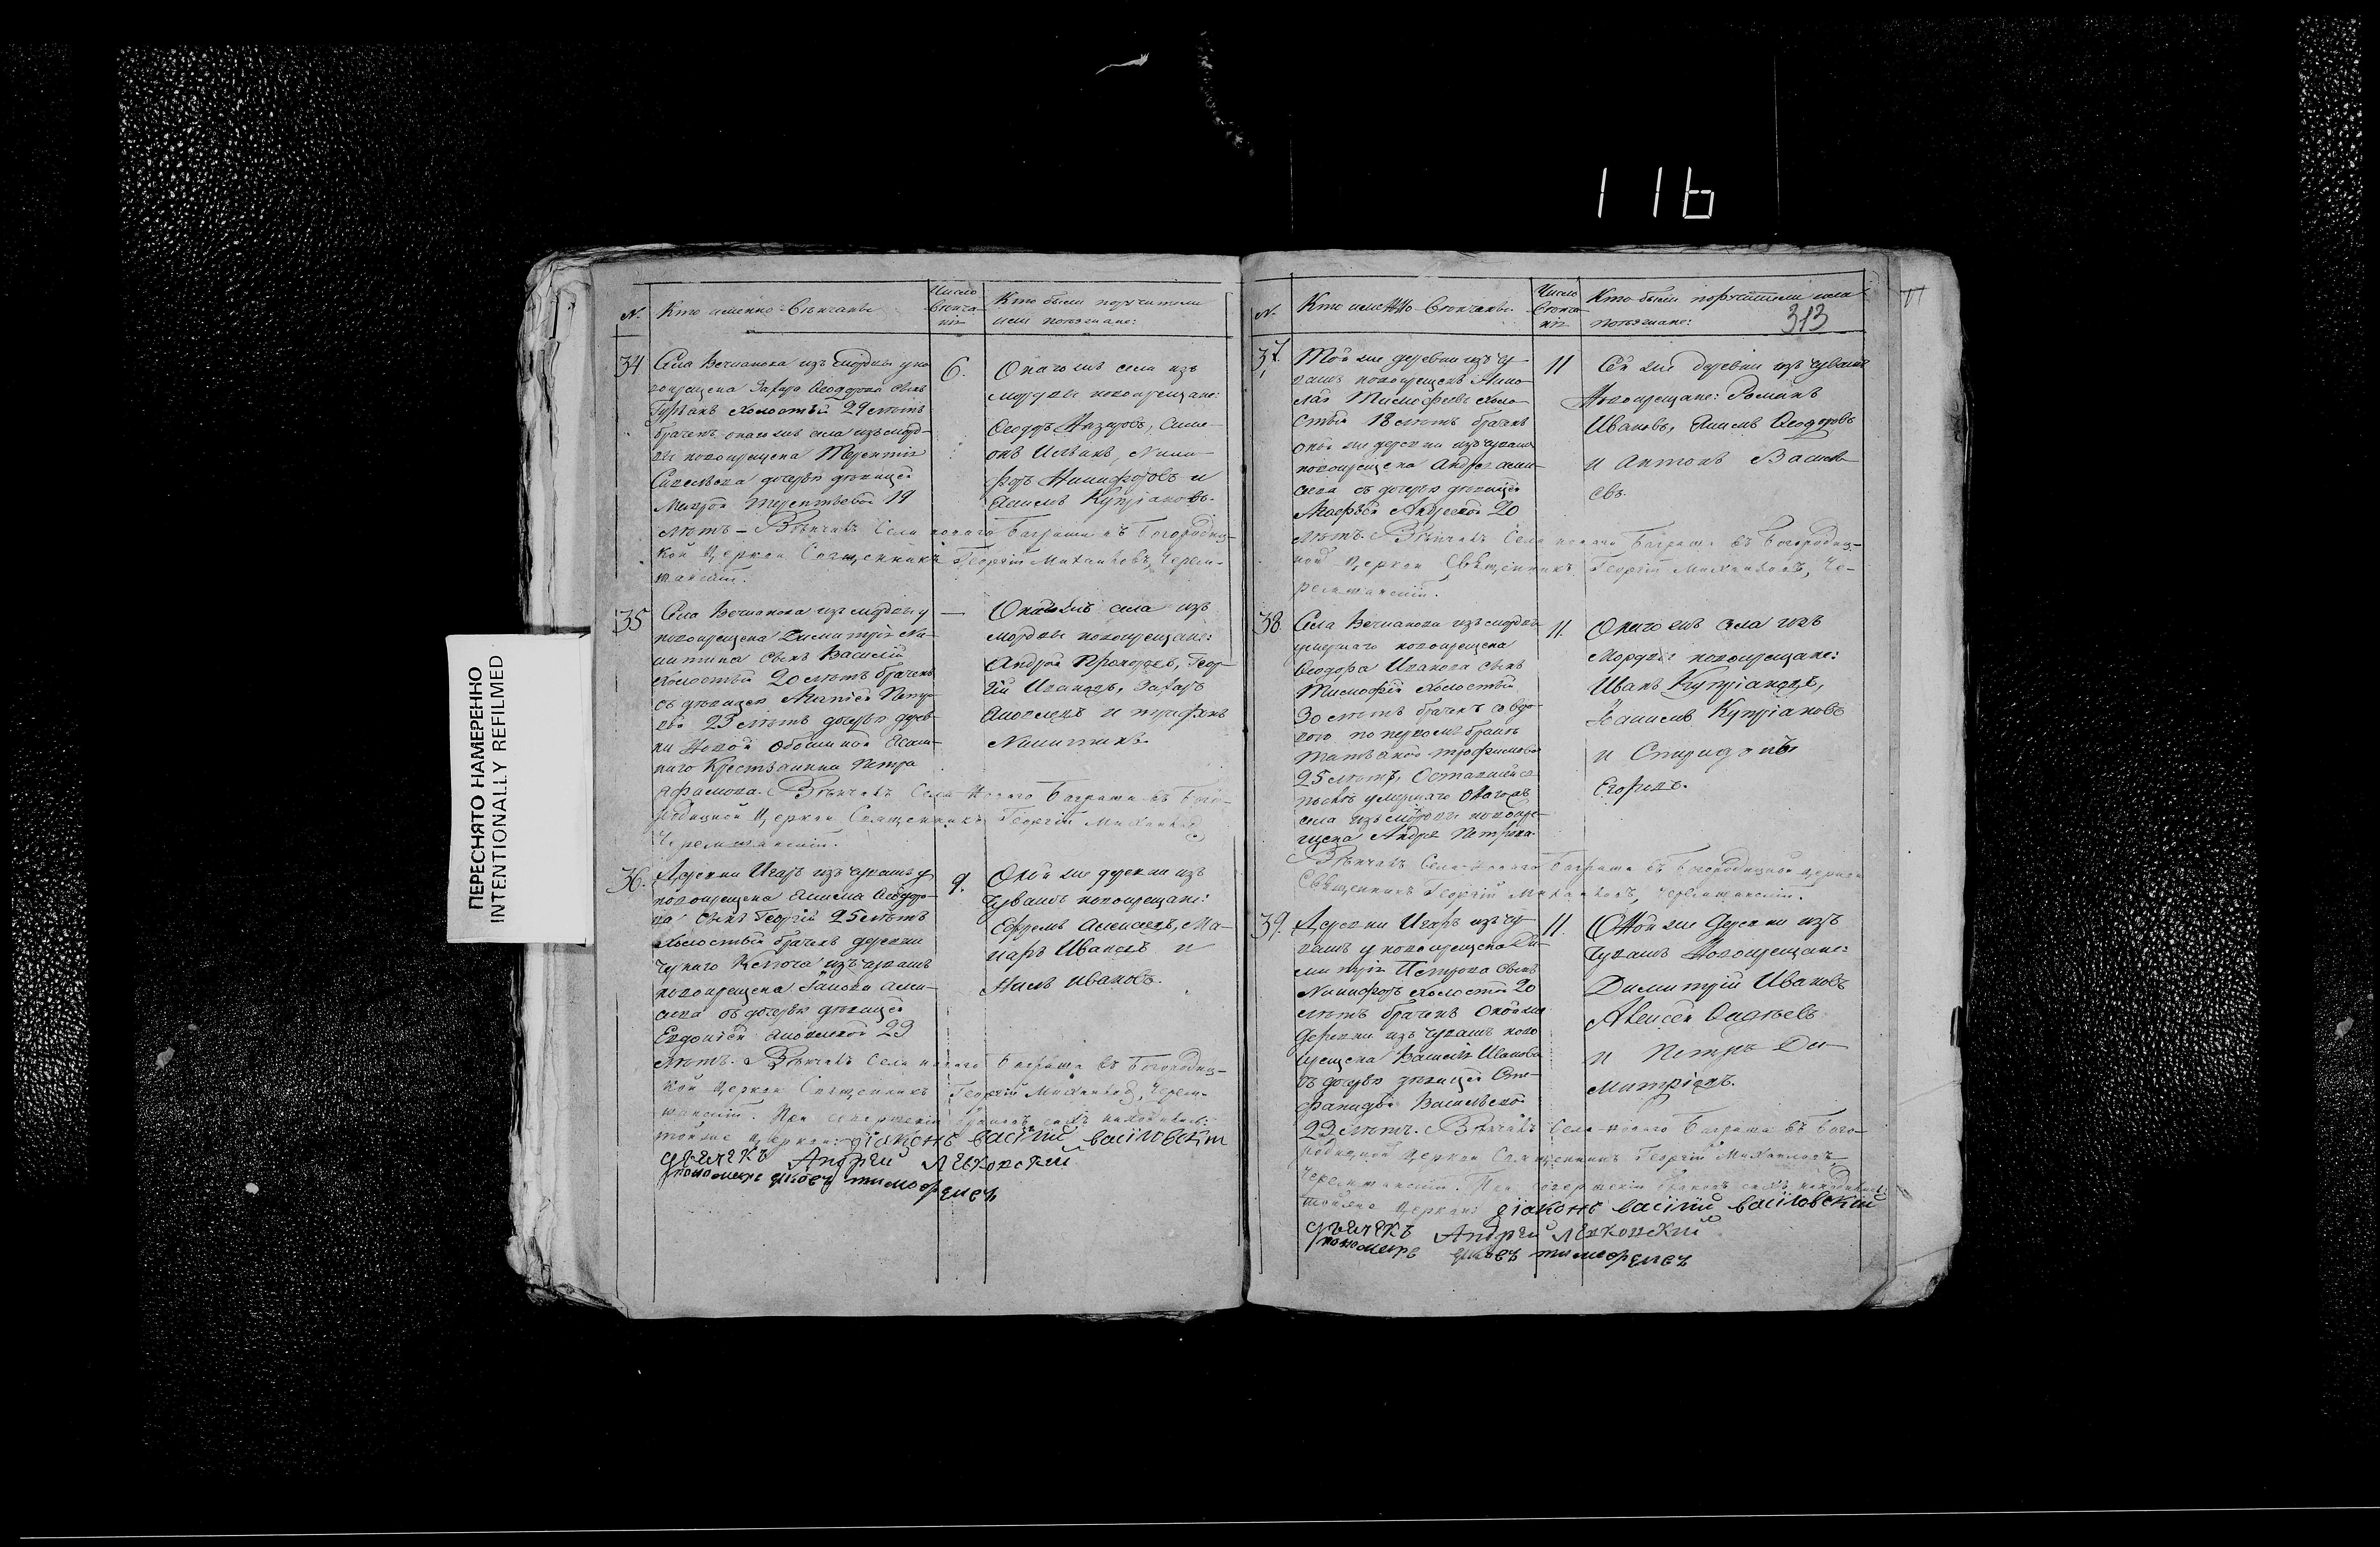 116
ПЕРЕСНЯТО НАМЕРЕННО
INTENTIONALLY REFILMED
№.
Кто именно Вѣнчаны
Число
Вѣнча-
нія
Кто были поручители
или поѣзжане:
34
Села изъ Мордвы
новокрещена Захара Ѳеодорова сынъ
холостый 29 лѣтъ
браченъ онаго жъ села изъ морд-
вы новокрещена Терентія
Савельева дочерью дѣвицей
Маврой Терентьевой 19
лѣтъ – Вѣнчалъ Села Новаго Баграша въ Богородиц-
кой церкви Священникъ Георгій Михайловъ, Черем-
шанскій.
6.
Онаго жъ села изъ
мордвы новокрещане:
Ѳеодоръ Назаровъ, Симе-
онъ Ники-
форъ Никифоровъ и
Куприановъ.
35
Села изъ мордвы у
новокрещена Димитрія Ни-
китина сынъ Василій
холостый 20 лѣтъ браченъ
съ дѣвицей Петро-
вой 23 лѣтъ дочерью дерев-
ни Новой Ясаш-
наго Крестьянина Петра
Вѣнчалъ Села Новаго Баграша въ Бого-
родицкой церкви Священникъ Георгій Михайловъ
Черемшанскій.
—
Онаго жъ села изъ
мордвы новокрещане:
Андрей Прохоровъ, Геор-
гій Ивановъ, Захаръ
и Трифонъ
Никитинъ.
36.
Деревни Игаръ изъ чувашъ у
новокрещена Ѳеодоро-
ва сынъ Георгій 25 лѣтъ
холостый браченъ деревни
изъ чувашъ
новокрещена Алек-
сѣева съ дочерью дѣвицей
Евдокіей 23
лѣтъ. Вѣнчалъ Села Новаго Баграша въ Богородиц-
кой церкви Священникъ Георгій Михайловъ, Черем-
шанскій. При совершеніи браковъ сихъ находились:
тойже церкви: діаконъ васілій васіловскій
дьячекъ Андрей Лѣвковскій
пономарь тимофѣевъ
9.
Оной же деревни изъ
Чувашъ новокрещане:
Ефремъ Алексѣевъ, Ма-
каръ Ивановъ и
Ивановъ.
№.
Кто именно Вѣнчаны.
Число
Вѣнча-
нія
Кто были поручители или
поѣзжане:
313
37.
Той же деревни изъ чу-
вашъ новокрещенъ Нико-
лай Тимофѣевъ холо-
стый 18 лѣтъ браченъ
оной же деревни изъ чувашъ
новокрещена Андрея Алек-
сѣева съ дочерью дѣвицей
Андреевой 20
лѣтъ. Вѣнчалъ Села Новаго Баграша въ Богородиц-
кой церкви Священникъ Георгій Михайловъ, Че-
ремшанскій.
11
Сей же деревни изъ чувашъ
Новокрещане: Романъ
Ивановъ, Ѳеодоровъ
и Антонъ Василь-
евъ.
38.
Села изъ мордвы
умершаго новокрещена
Ѳеодора Иванова сынъ
Тимофѣй холостый
30 лѣтъ браченъ со вдо-
вою по первомъ бракѣ
Татьяной Трофимовой
25 лѣтъ, Оставшейся
послѣ умершаго онагожъ
села изъ мордвы новокре-
щена Андрея Петрова.
Вѣнчалъ Села Новаго Баграша въ Богородицкой церкви
Священникъ Георгій Михайловъ, Черемшанскій.
11.
Онаго жъ села изъ
Мордвы новокрещане:
Иванъ Купріановъ,
Купріановъ
и Спиридонъ
Егоровъ.
39.
Деревни Игаръ изъ чу-
вашъ у новокрещена Ди-
митрія Петрова сынъ
Никифоръ холостой 20
лѣтъ браченъ оной же
деревни изъ чувашъ ново
крещена Василія Иванова
съ дочерью дѣвицей Сте-
фанидой Васильевой
23 лѣтъ. Вѣнчалъ Села Новаго Баграша въ Бого-
родицкой церкви Священникъ Георгій Михайловъ
Черемшанскій. При совершеніи браковъ сихъ находились:
тойже церкви: діаконъ васілій васіловскій
дьячекъ Андрей Лѣвковскій
пономарь тимофѣевъ
11.
Той же Деревни изъ
Чувашъ Новокрещане:
Димитрій Ивановъ
Алексѣй
и Петръ Ди-
митріевъ.